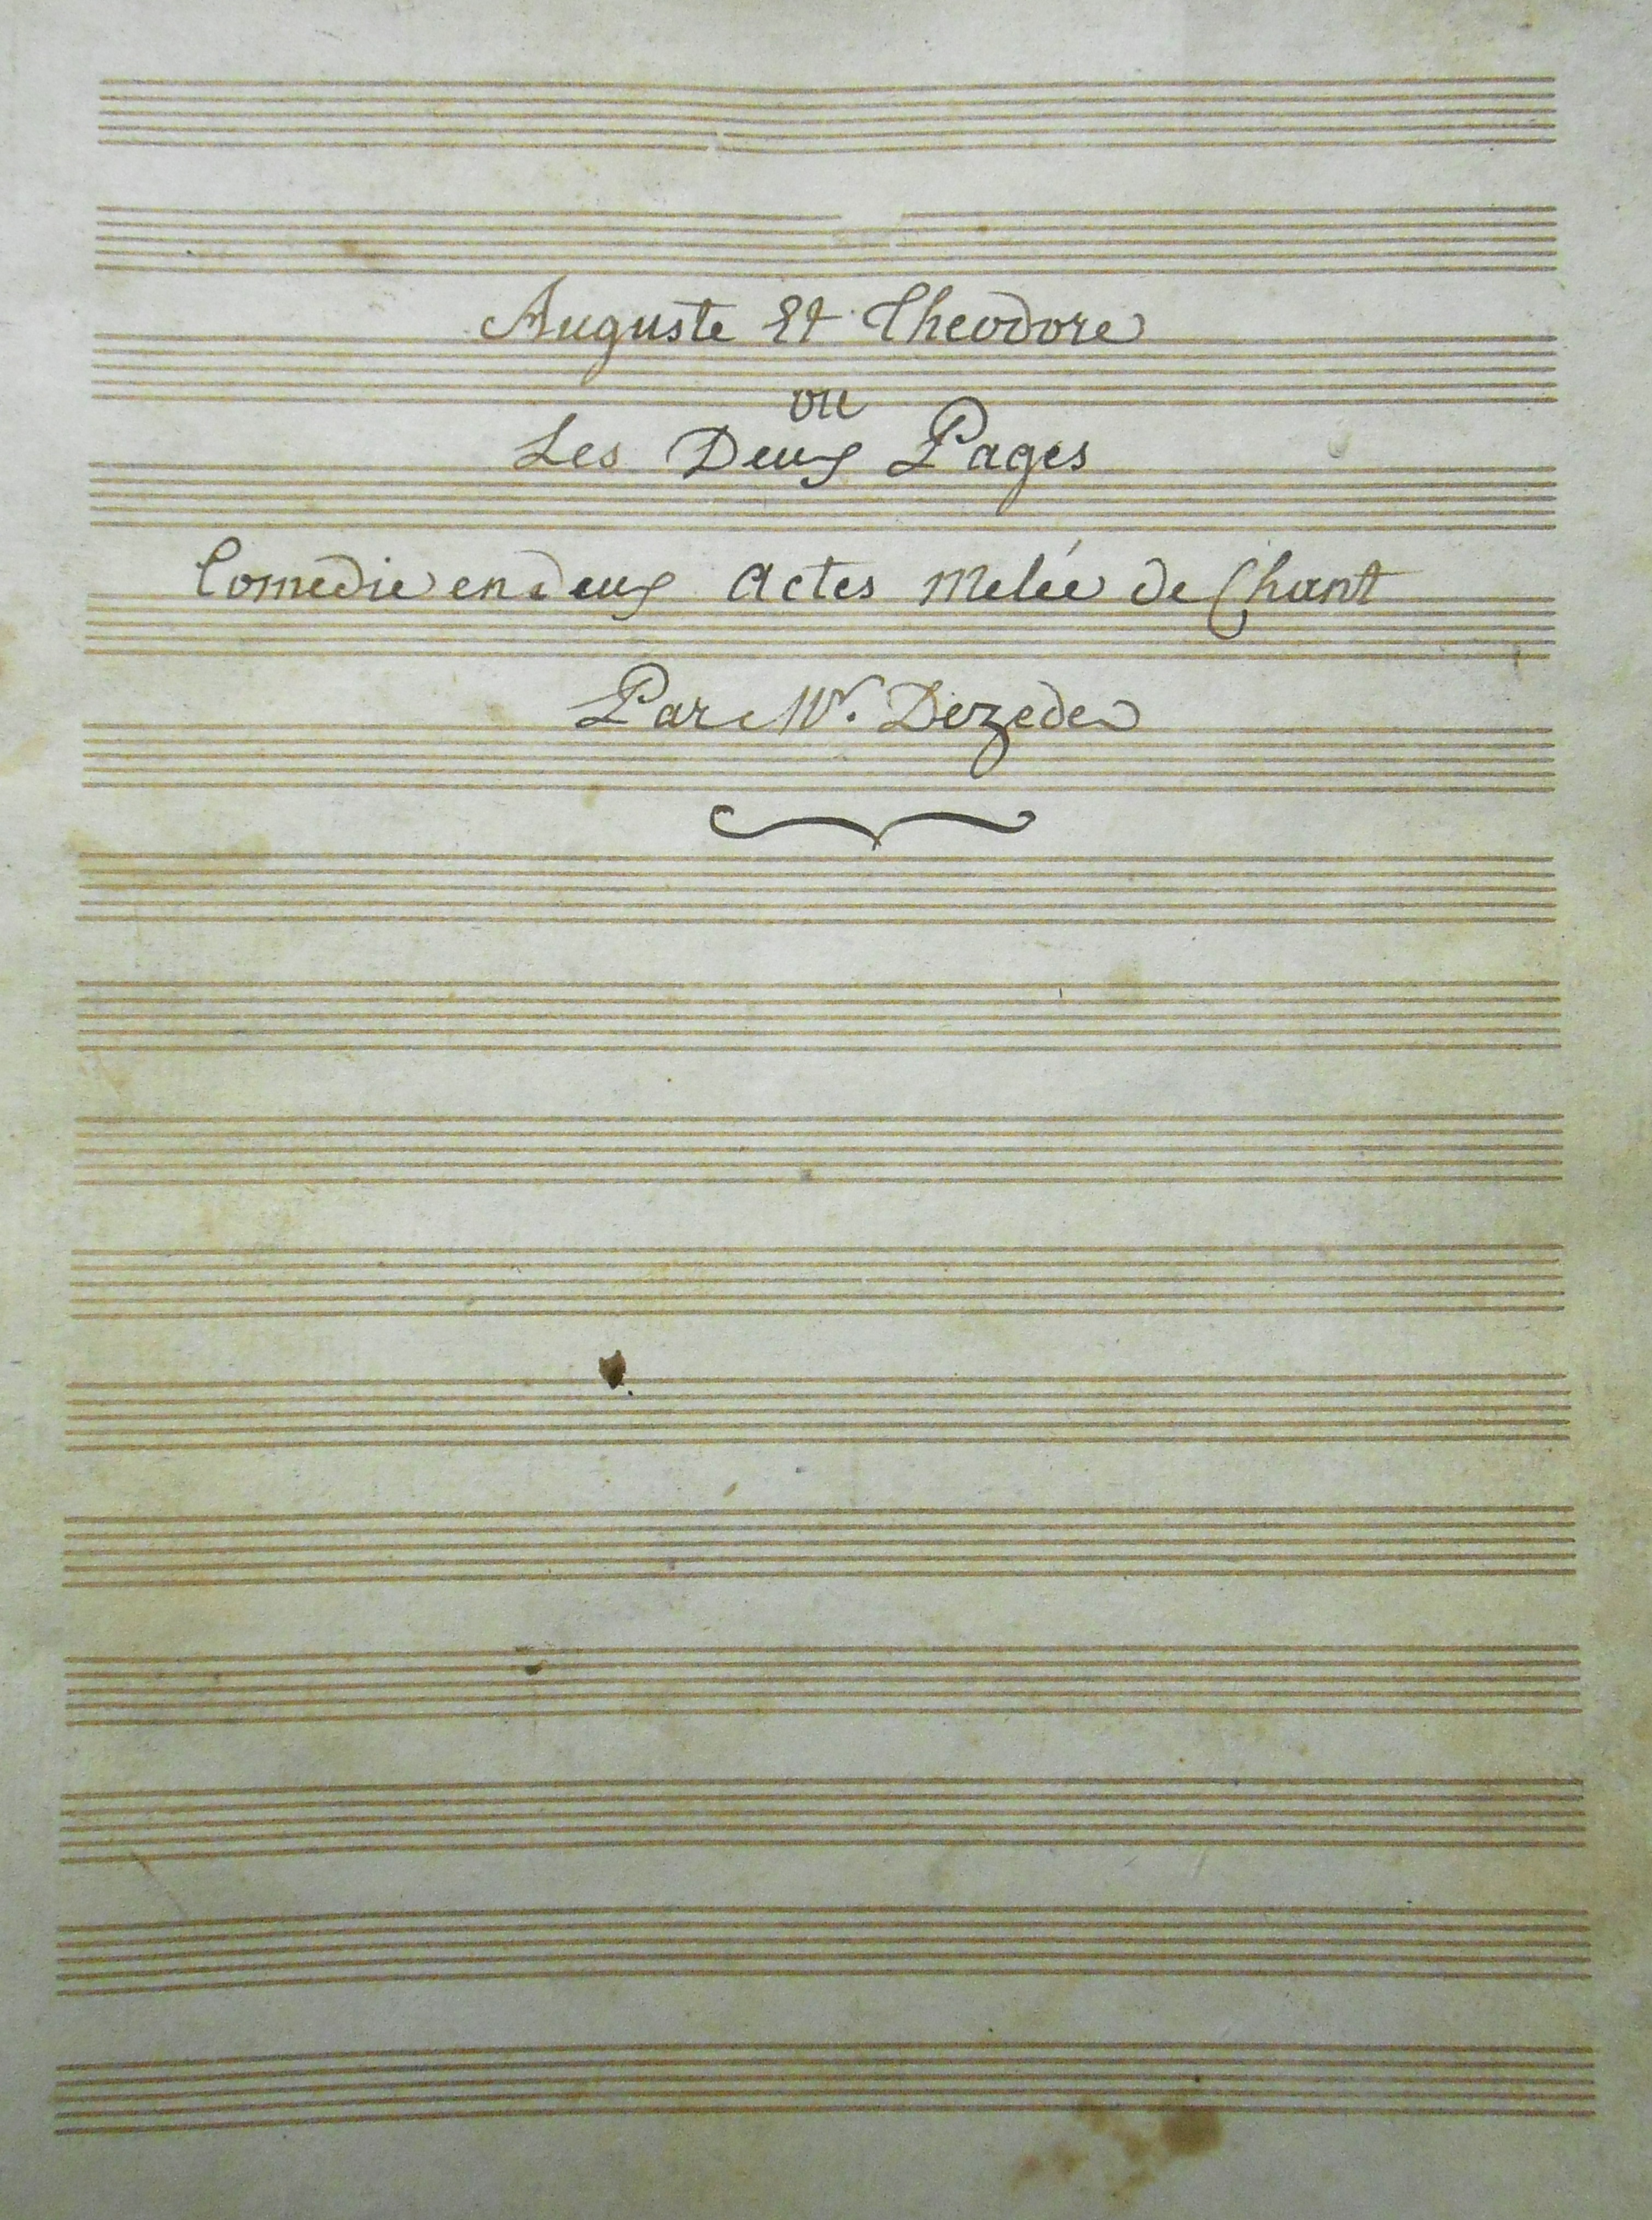 Auguste Et Theodore
ou
Les Deux Pages
Comedie en deux Actes Melée de Chant
Par Mr. Dezede